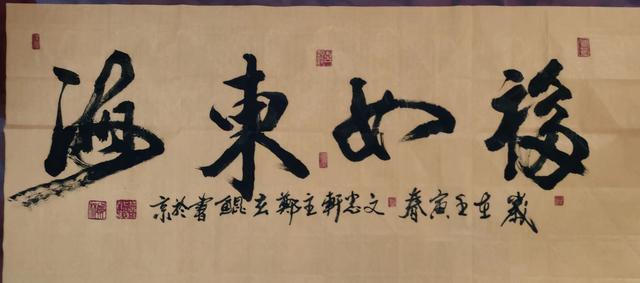 福如东海
歲在壬寅春文忠軒主鄭玄鯤書於京